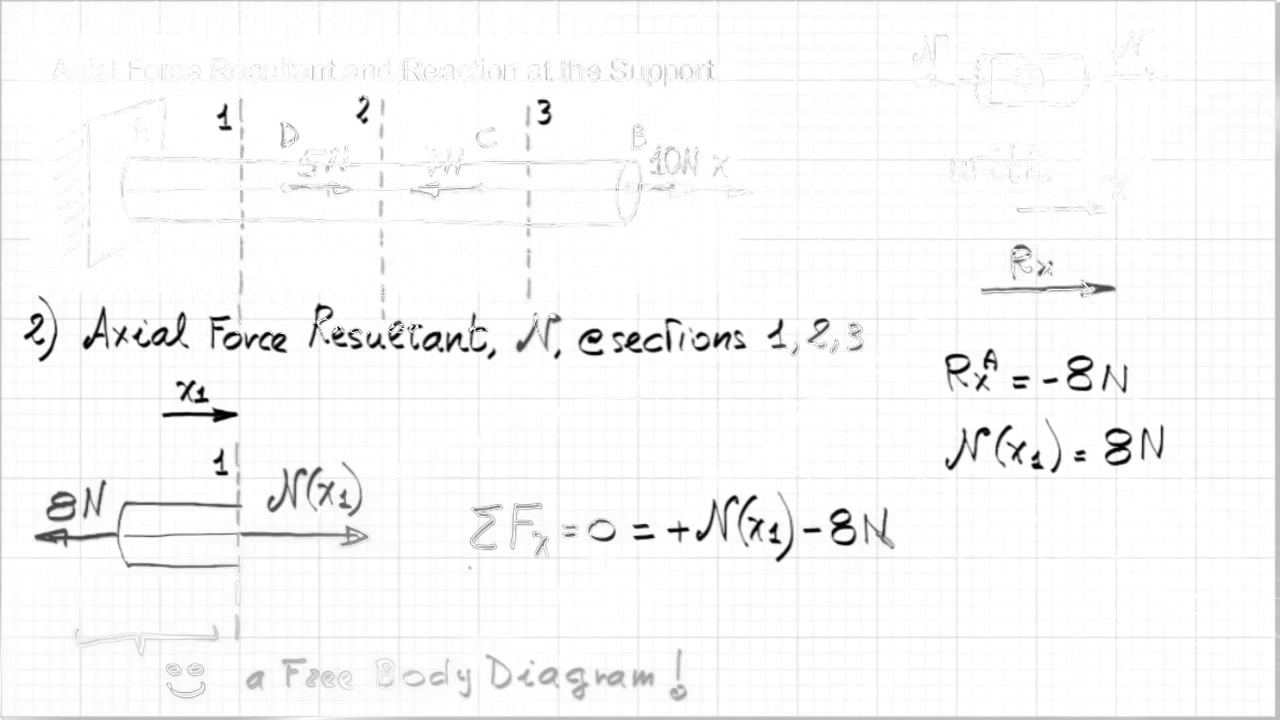 Axial Force Resultant and Reaction at the Support
N N
1 2 3
A D C B
5N 7N 10N x
with
x
Rx
2) Axial Force Resultant, N, @sections 1,2,3
RxA = -8N
x1
N(x1) = 8N
1
8N N(x1)
ΣFx = 0 = +N(x1) - 8N
a Free Body Diagram!